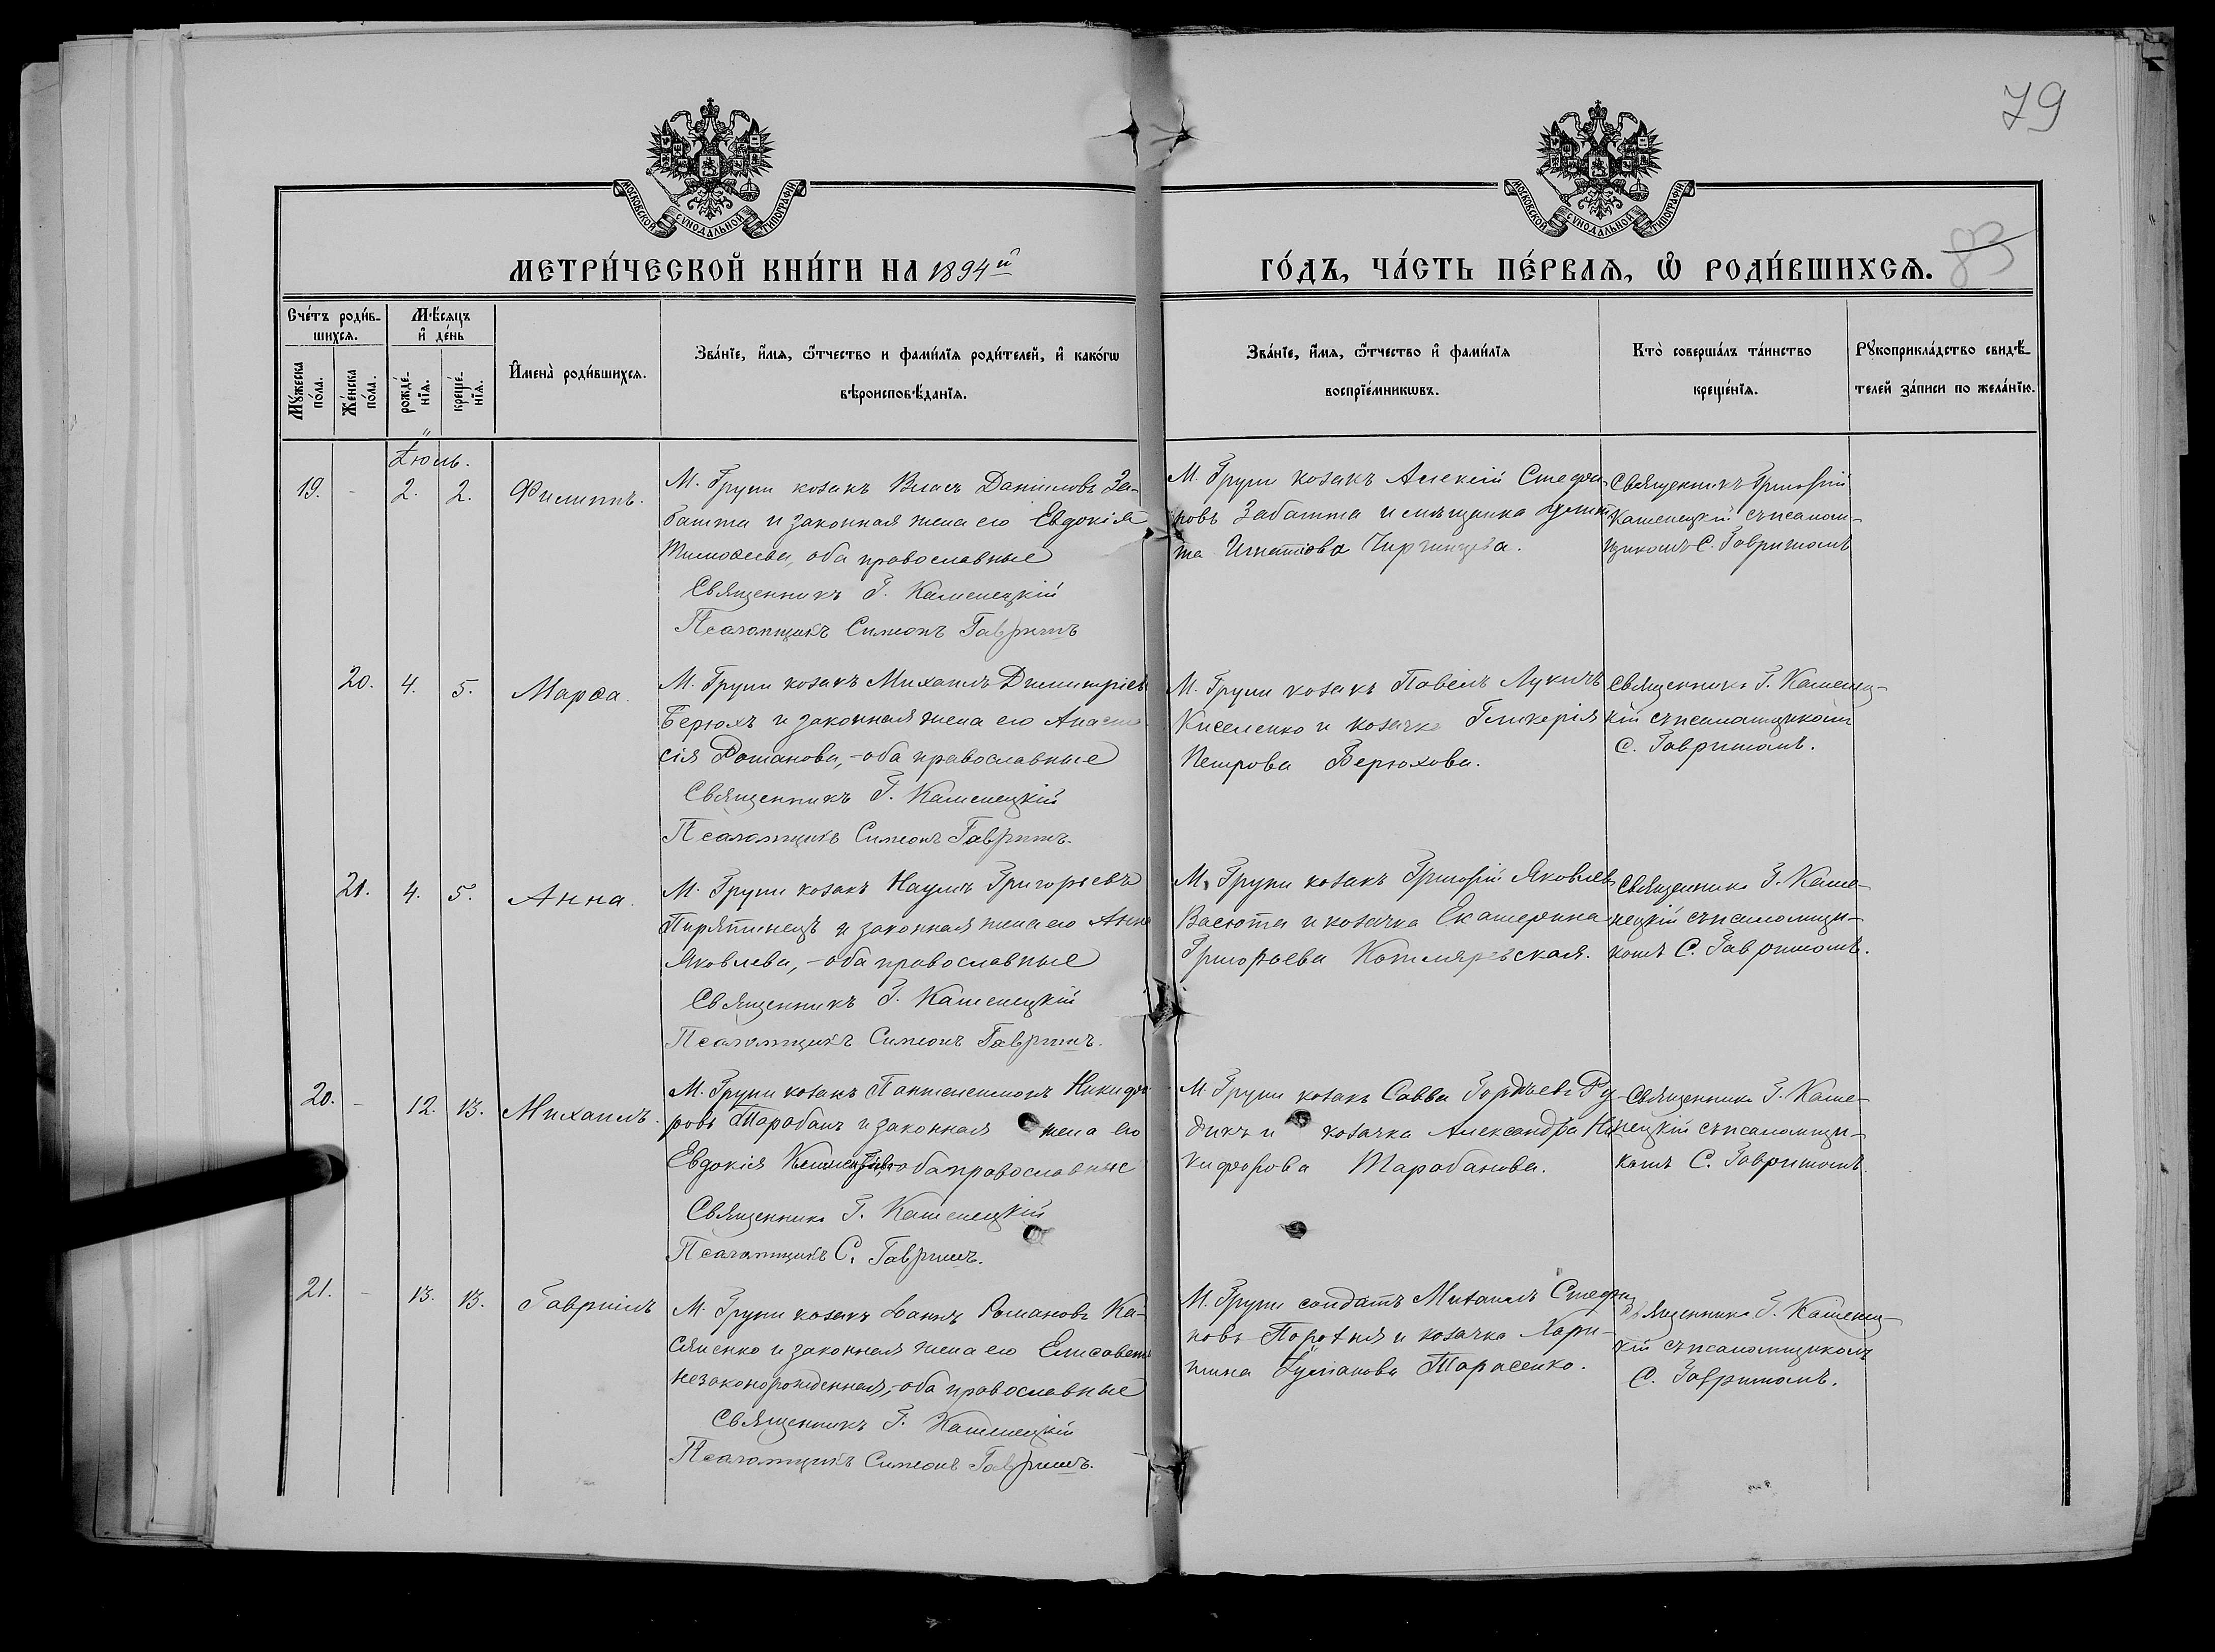 79
83
МОСКОВСКОЙ СѴНОДАЛЬНОЙ ТИПОГРАФІИ
МОСКОВСКОЙ СѴНОДАЛЬНОЙ ТИПОГРАФІИ
МЕТРИ́ЧЕСКОЙ КНИ́ГИ НА 1894й
ГО́ДЪ, ЧА́СТЬ ПЕ́РВАѦ, Ѡ҆ РОДИ́ВШИХСѦ.
Сче́тъ роди́в-
шихсѧ.
Мѣ́сѧцъ
и҆ де́нь
Мꙋ́жеска
по́ла.
Же́нска
по́ла.
рожде́-
нїѧ.
креще́-
нїѧ.
И҆мена̀ роди́вшихсѧ.
Зва́нїе, и҆́мѧ, ѻ҆́тчество и фами́лїѧ роди́телей, и҆ како́гѡ
вѣроисповѣ́данїѧ.
Зва́нїе, и҆́мѧ, ѻ҆́тчество и҆ фами́лїѧ
воспрїе́мникѡвъ.
Кто̀ соверша́лъ та́инство
креще́нїѧ.
Рꙋкоприкла́дство свидѣ́-
телей за́писи по жела́нїю.
Іюль.
19. - 2. 2. Филиппъ.
М. Груни козакъ Власъ Даніиловъ За-
башта и законная жена его Евдокія
Тимоѳеева, оба православные
Священникъ Г. Каменецкій
Псаломщикъ Симеонъ Гавришъ
М. Груни козакъ Алексій Стефа-
новъ Забашта и мѣщанка
та Игнатіова
Священникъ Григорій
Каменецкій съ псалом-
щикомъ С. Гавришомъ
20. 4. 5. Марѳа.
М. Груни козакъ Михаилъ Димитріевъ
Берюхъ и законная жена его Анаста-
сія Романова, - оба православные
Священникъ Г. Каменецкій
Псаломщикъ Симеонъ Гавришъ.
М. Груни козакъ Павелъ Лукичъ
Киселенко и козачка Гликерія
Петрова Берюхова.
Священникъ Г. Каменец-
кій съ псаломщикомъ
С. Гавришомъ.
21. 4. 5. Анна.
М. Груни козакъ Наумъ Григорьевъ
Пирятинецъ и законная жена его Анна
Яковлева, - оба православные
Священникъ Г. Каменецкій
Псаломщикъ Симеонъ Гавришъ.
М. Груни козакъ Григорій Яковлевъ
Васюта и козачка Екатерина
Григорьева Котляревская.
Священникъ Г. Каме-
нецкій съ псаломщи-
комъ С. Гавришомъ.
20. - 12. 13. Михаилъ.
М. Груни козакъ Пантелеимонъ Никифо-
ровъ Тарабанъ и законная жена его
Евдокія оба православные
Священникъ Г. Каменецкій
Псаломщикъ С. Гавришъ.
М. Груни козакъ Савва Гордѣевъ Ру-
дикъ и козачка Александра Ни-
кифорова Тарабанова.
Священникъ Г. Каме-
нецкій съ псаломщи-
комъ С. Гавришомъ.
21. - 13. 13. Гавріилъ
М. Груни козакъ Іоаннъ Романовъ Ка-
сяненко и законная жена его Елисавета
незаконорожденная, - оба православные
Священникъ Г. Каменецкій
Псаломщикъ Симеонъ Гавришъ.
М. Груни солдатъ Михаилъ Стефа-
новъ и козачка Хари-
тина Тарасенко.
Священникъ Г. Каменец-
кій съ псаломщикомъ
С. Гавришомъ.